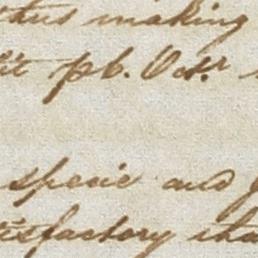 thus making
pb. Octr
specie and
tisfactory tha